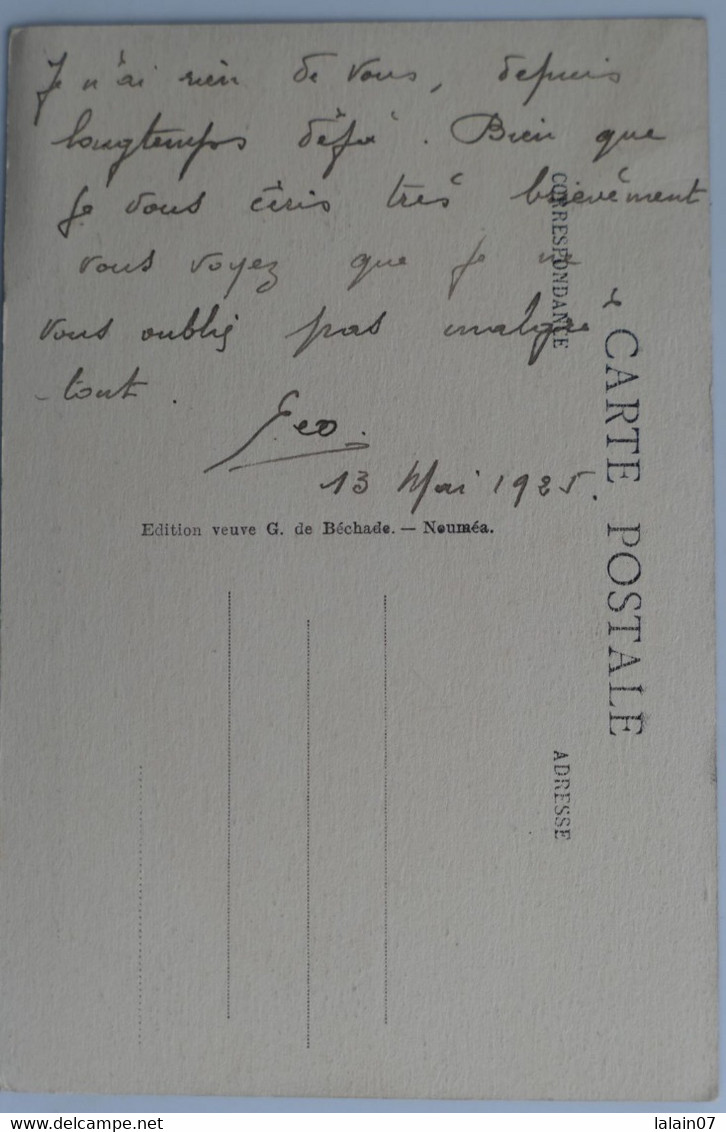 Je n'ai rien de vous, depuis
longtemps déjà. Bien que
je vous écris très brievément
vous voyez que je ne
vous oublie pas malgré
tout.
Geo.
13 Mai 1925.
Edition veuve G. de Béchade. — Nouméa.
CARTE POSTALE
CORRESPONDANCE
ADRESSE
www.delcampe.net
lalain07